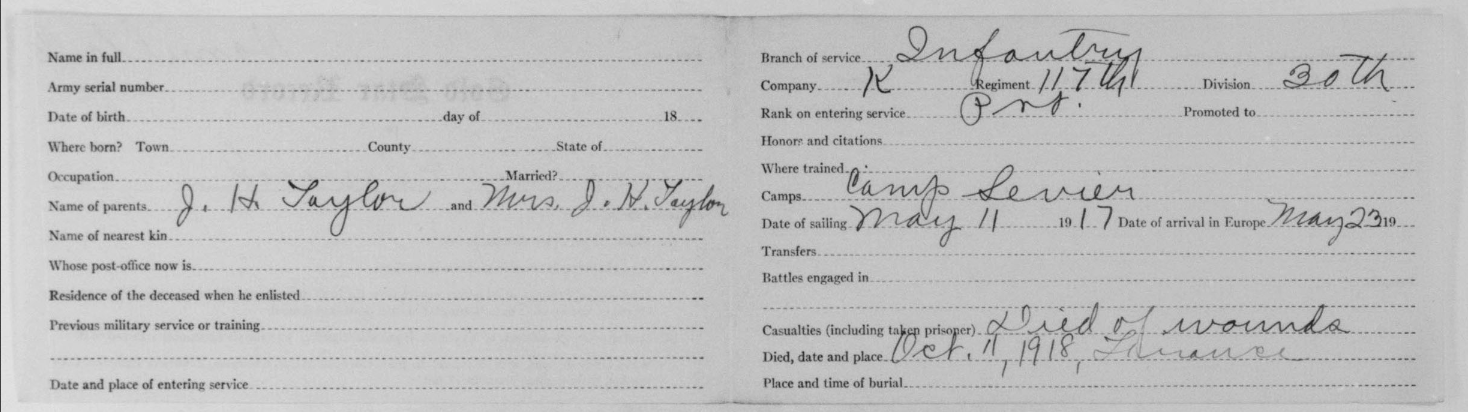 Name in full
Army serial number
Date of birth day of 18
Where born? Town County State of
Occupation Married?
Name of parents J. H. Taylor and Mrs. J. H. Taylor
Name of nearest kin
Whose post-office now is
Residence of the deceased when he enlisted
Previous military service or training
Date and place of entering service
Branch of service Infantry
Company K Regiment 117th Division 30th
Rank on entering service Pvt. Promoted to
Honors and citations
Where trained
Camps Camp Sevier
Date of sailing May 11 1917 Date of arrival in Europe May 23 19
Transfers
Battles engaged in
Casualties (including taken prisoner) Died of wounds
Died, date and place Oct. 11, 1918,
Place and time of burial
Gold Star Record